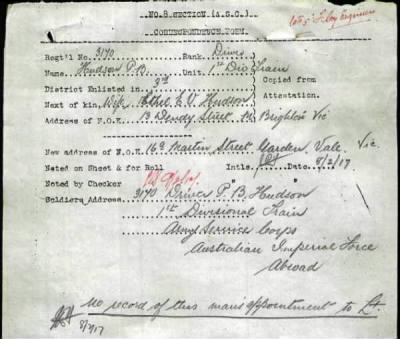 No. 8 SECTION (A.S.C.)
CORRESPONDENCE FORM.
Regt'l No. 3170 Rank. Driver
Name. Hudson P.B. Unit. 1st Div Train
District Enlisted in. 3rd Copied from
Next of kin. Wife, E.V. Hudson Attestation.
Address of N.O.K. 13 Dendy Street, Brighton Vic
New address of N.O.K. 16a Martin Street Garden Vale. Vic.
Noted on Sheet & for Roll Intls. Date. 8/2/17
Noted by Checker
Soldiers Address. 3170 Driver P. B. Hudson
1st Divisional Train
Army Service Corps
Australian Imperial Force
Abroad
No record of this mans appointment to Lt.
8/2/17